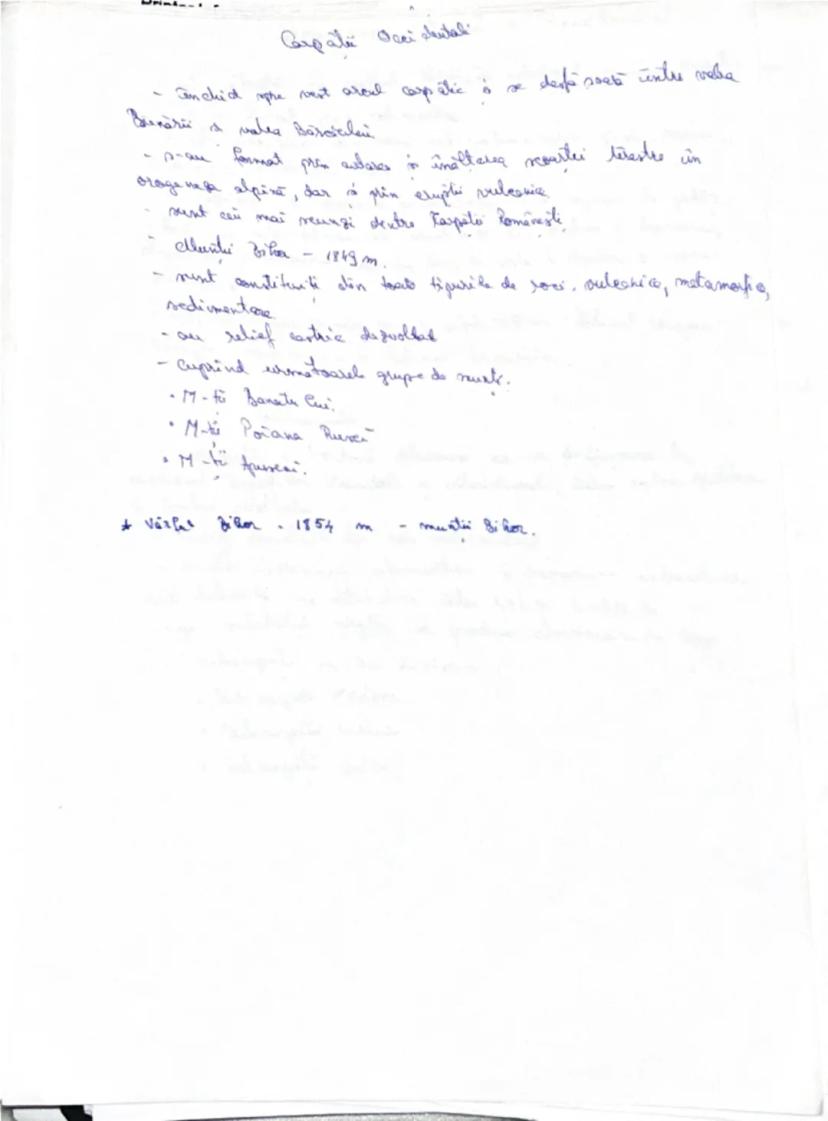 Carpații Occidentali
- închid spre vest arcul carpatic și se desfășoară între valea
Dunării și valea Barcăului
- s-au format prin cutarea și înălțarea scoarței terestre în
orogeneza alpină, dar și prin erupții vulcanice
- sunt cei mai scunzi dintre Carpații Românești
- Munții Bihor - 1849 m.
- sunt constituiți din toate tipurile de roci, vulcanice, metamorfice,
sedimentare
- au relief carstic dezvoltat
- cuprind următoarele grupe de munți.
• M-ții Banatului.
• M-ții Poiana Ruscă
• M-ții Apuseni.
* Vârful Bihor - 1854 m - munții Bihor.